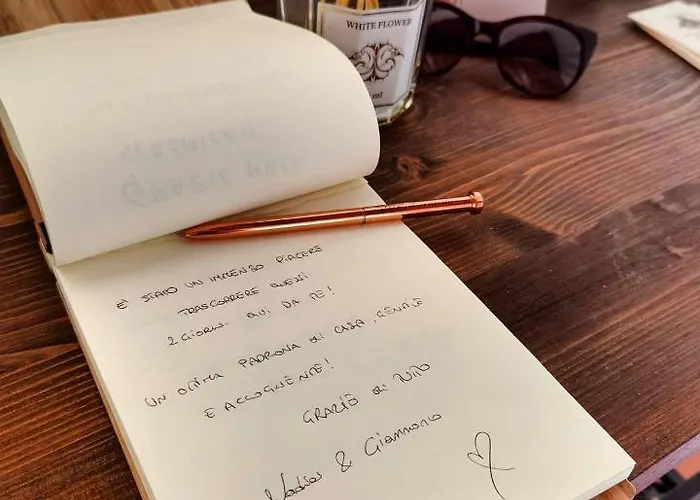 WHITE FLOWER
ml
È STATO UN IMMENSO PIACERE
TRASCORRERE QUESTI
2 GIORNI QUI DA TE!
UN OTTIMA PADRONA DI CASA, GENTILE
E ACCOGLIENTE!
GRAZIE DI TUTTO
&